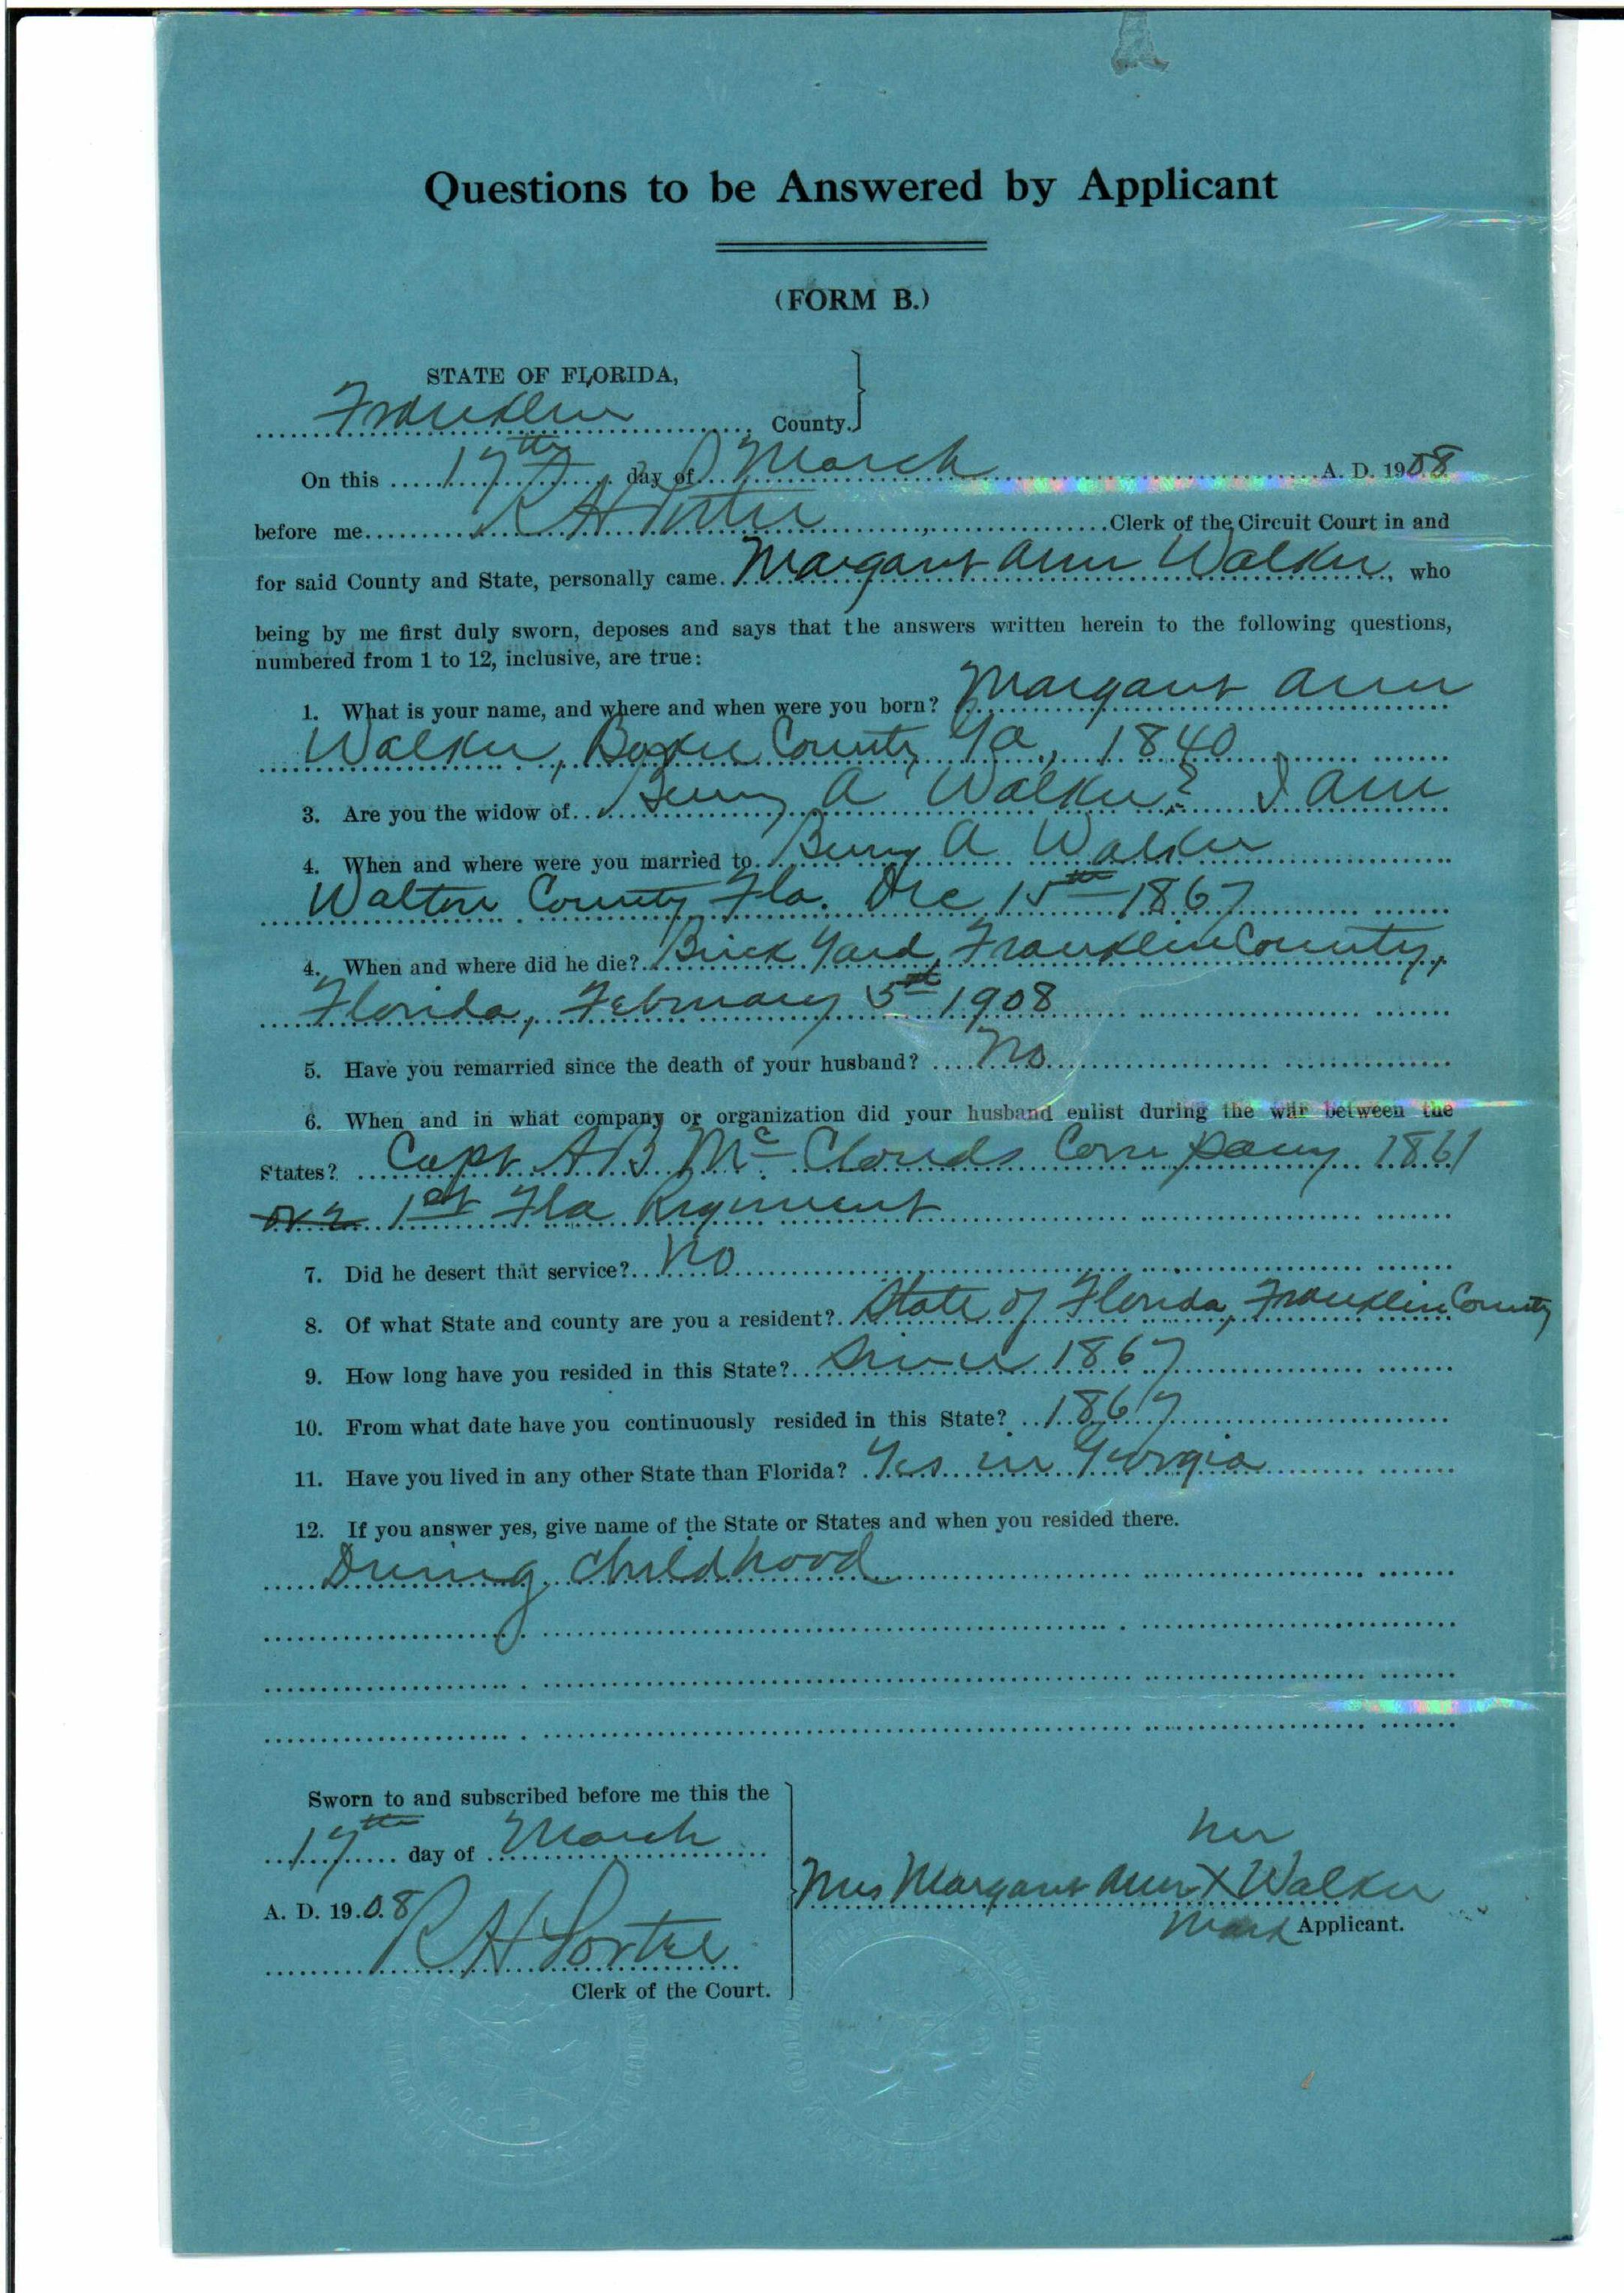 Questions to be Answered by Applicant
(FORM B.)
STATE OF FLORIDA,
Franklin County.
On this 17th day of March A. D. 1908
before me R H Porter Clerk of the Circuit Court in and
for said County and State, personally came Margaret Ann Walker, who
being by me first duly sworn, deposes and says that the answers written herein to the following questions,
numbered from 1 to 12, inclusive, are true:
1. What is your name, and where and when were you born? Margaret Ann
Walker, Baker County Ga, 1840
3. Are you the widow of Berry A Walker? I am
4. When and where were you married to Berry A Walker
Walton County Fla. Dec 15th 1867
4. When and where did he die? Brick Yard, Franklin County,
Florida, February 1908
5. Have you remarried since the death of your husband? No
6. When and in what company or organization did your husband enlist during the war between the
States? Capt A B McClouds Company 1861
or 2 1st Fla Regiment
7. Did he desert that service? No
8. Of what State and county are you a resident? State of Florida, Franklin County
9. How long have you resided in this State? Since 1867
10. From what date have you continuously resided in this State? 1867
11. Have you lived in any other State than Florida? Yes in Georgia
12. If you answer yes, give name of the State or States and when you resided there.
During childhood
Sworn to and subscribed before me this the
17th day of March
A. D. 1908
R H Porter
Clerk of the Court.
her
Mrs Margaret Ann X Walker
mark Applicant.